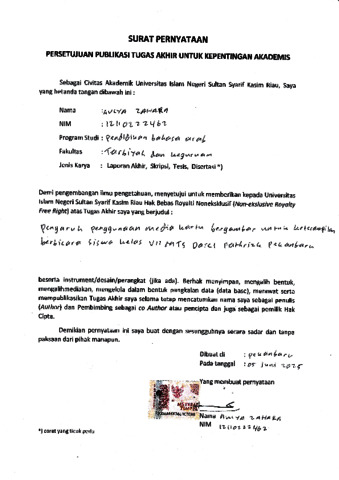 SURAT PERNYATAAN
PERSETUJUAN PUBLIKASI TUGAS AKHIR UNTUK KEPENTINGAN AKADEMIS
Sebagai Civitas Akademik Universitas Islam Negeri Sultan Syarif Kasim Riau, Saya
yang betanda tangan dibawah ini :
Nama : AULYA ZAHARA
NIM : 12110222462
Program Studi : Pendidikan bahasa arab
Fakultas : Tarbiyah dan keguruan
Jenis Karya : Laporan Akhir, Skripsi, Tesis, Disertasi *)
Demi pengembangan ilmu pengetahuan, menyetujui untuk memberikan kepada Universitas
Islam Negeri Sultan Syarif Kasim Riau Hak Bebas Royalti Noneksklusif (Non-exlusive Royalty
Free Right) atas Tugas Akhir saya yang berjudul :
Pengaruh penggunaan media kartu bergambar untuk keterampilan
berbicara siswa kelas VII MTS Darel Pekanbaru
beserta instrument/desain/perangkat (jika ada). Berhak menyimpan, mengalih bentuk,
mengalihmediakan, mengelola dalam bentuk pangkalan data (data base), merawat serta
mempublikasikan Tugas Akhir saya selama tetap mencatumkan nama saya sebagai penulis
(Author) dan Pembimbing sebagai co Author atau pencipta dan juga sebagai pemilik Hak
Cipta.
Demikian pernyataan ini saya buat dengan sesungguhnya secara sadar dan tanpa
paksaan dari pihak manapun.
Dibuat di : pekanbaru
Pada tanggal : 05 Juni 2025
Yang membuat pernyataan
Nama AULYA ZAHARA
NIM 12110222462
*) coret yang tidak perlu